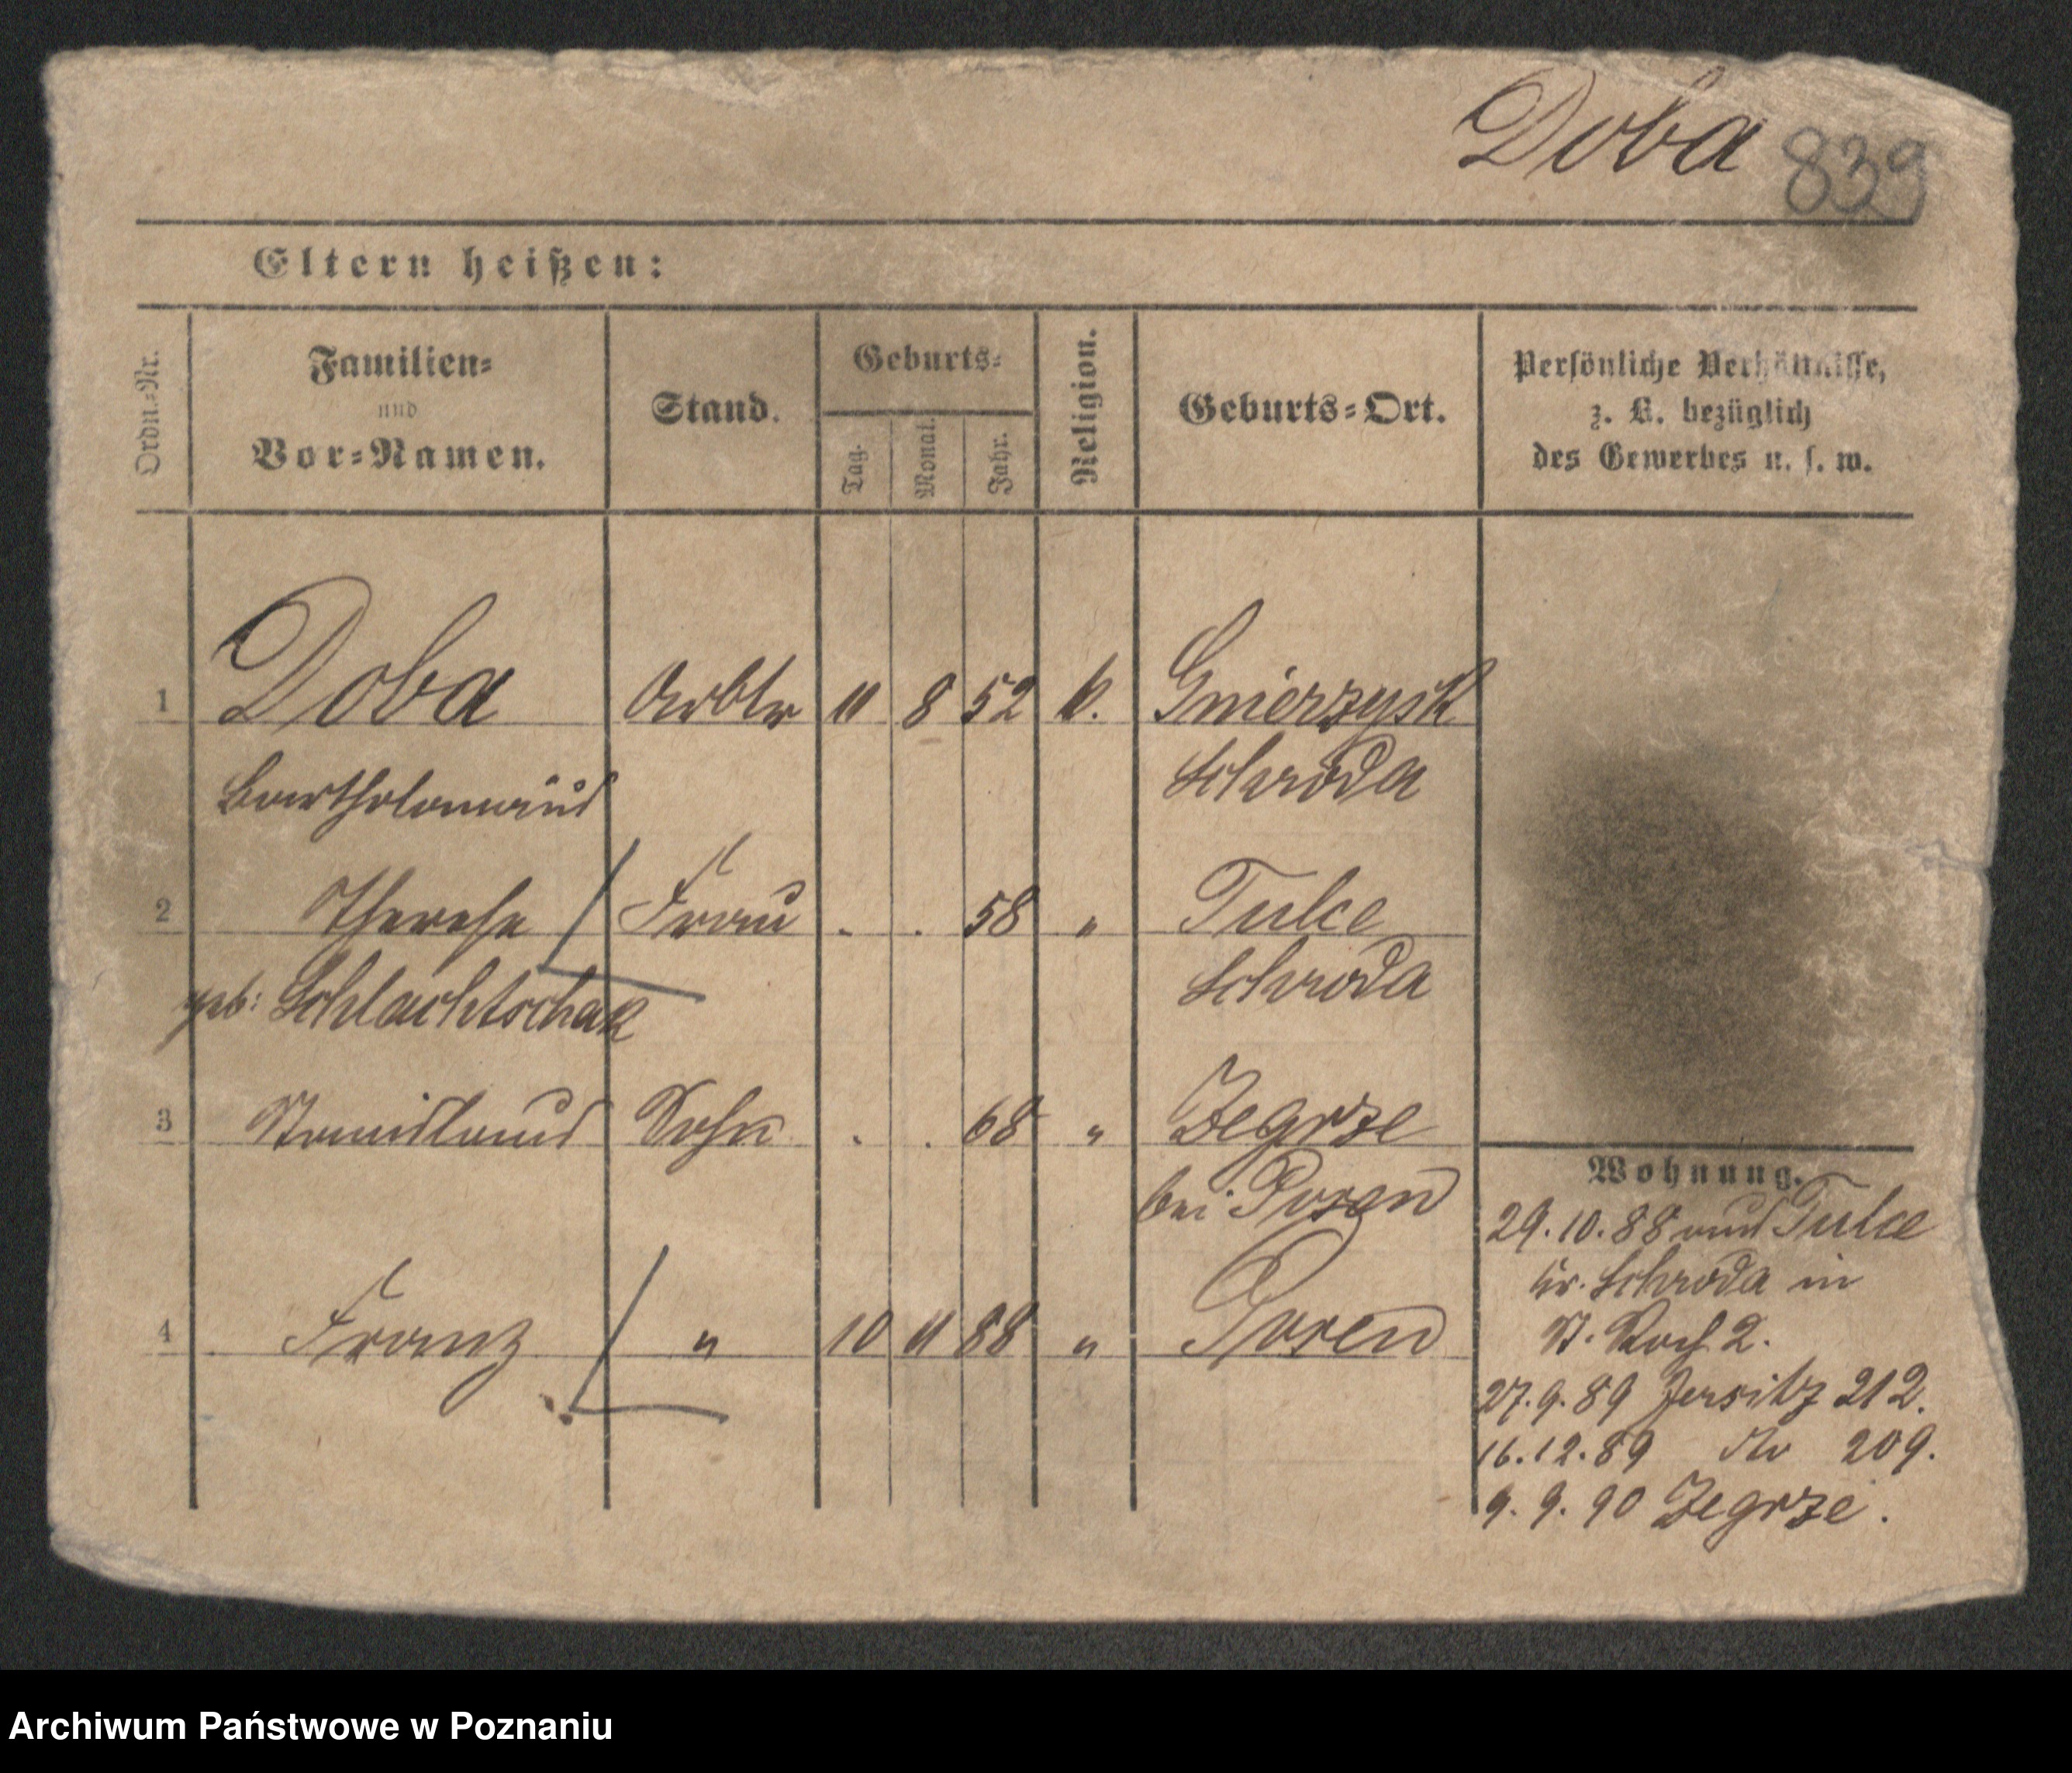 Doba 839
Eltern heißen:
Ordn.-Nr.
Familien-
und
Vor-Namen.
Stand.
Geburts-
Tag.
Monat.
Jahr.
Religion.
Geburts-Ort.
Persönliche Verhältnisse,
z. B. bezüglich
des Gewerbes u. s. w.
1 Doba Arbtr 11 8 52 k.
Schroda
Bartholomäus
2 Therese Frau . . 58 " Tulce
geb: Schlachtschak Schroda
3 Stanislaus Sohn . . 68 " Zegrze
bei Posen
4 Franz " 10 11 88 " Posen
Wohnung.
29.10.88 aus Tulce
Kr. Schroda in
St. Roch 2.
27.9.89 Jersitz 212.
16.12.89 209.
9.9.90 Zegrze.
Archiwum Państwowe w Poznaniu